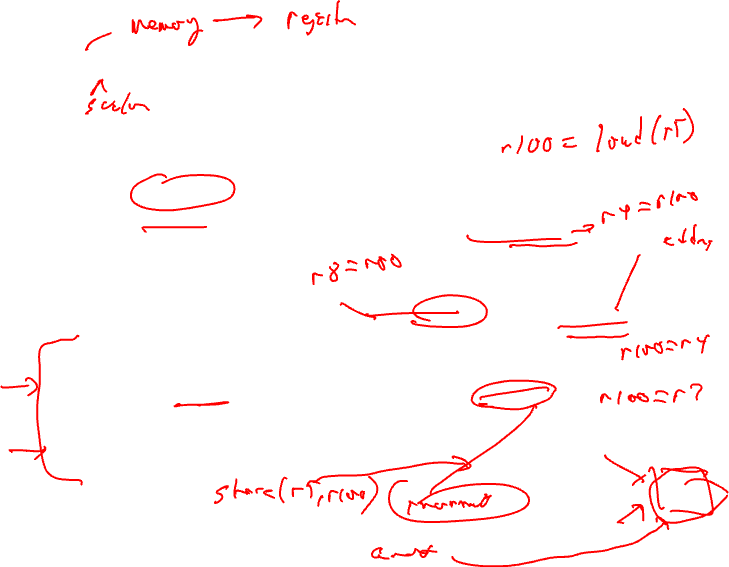 memory → register
scalar
r100 = load(r5)
r4=r100
r8=r100
r100=r4
r100=r7
store(r5,r100)